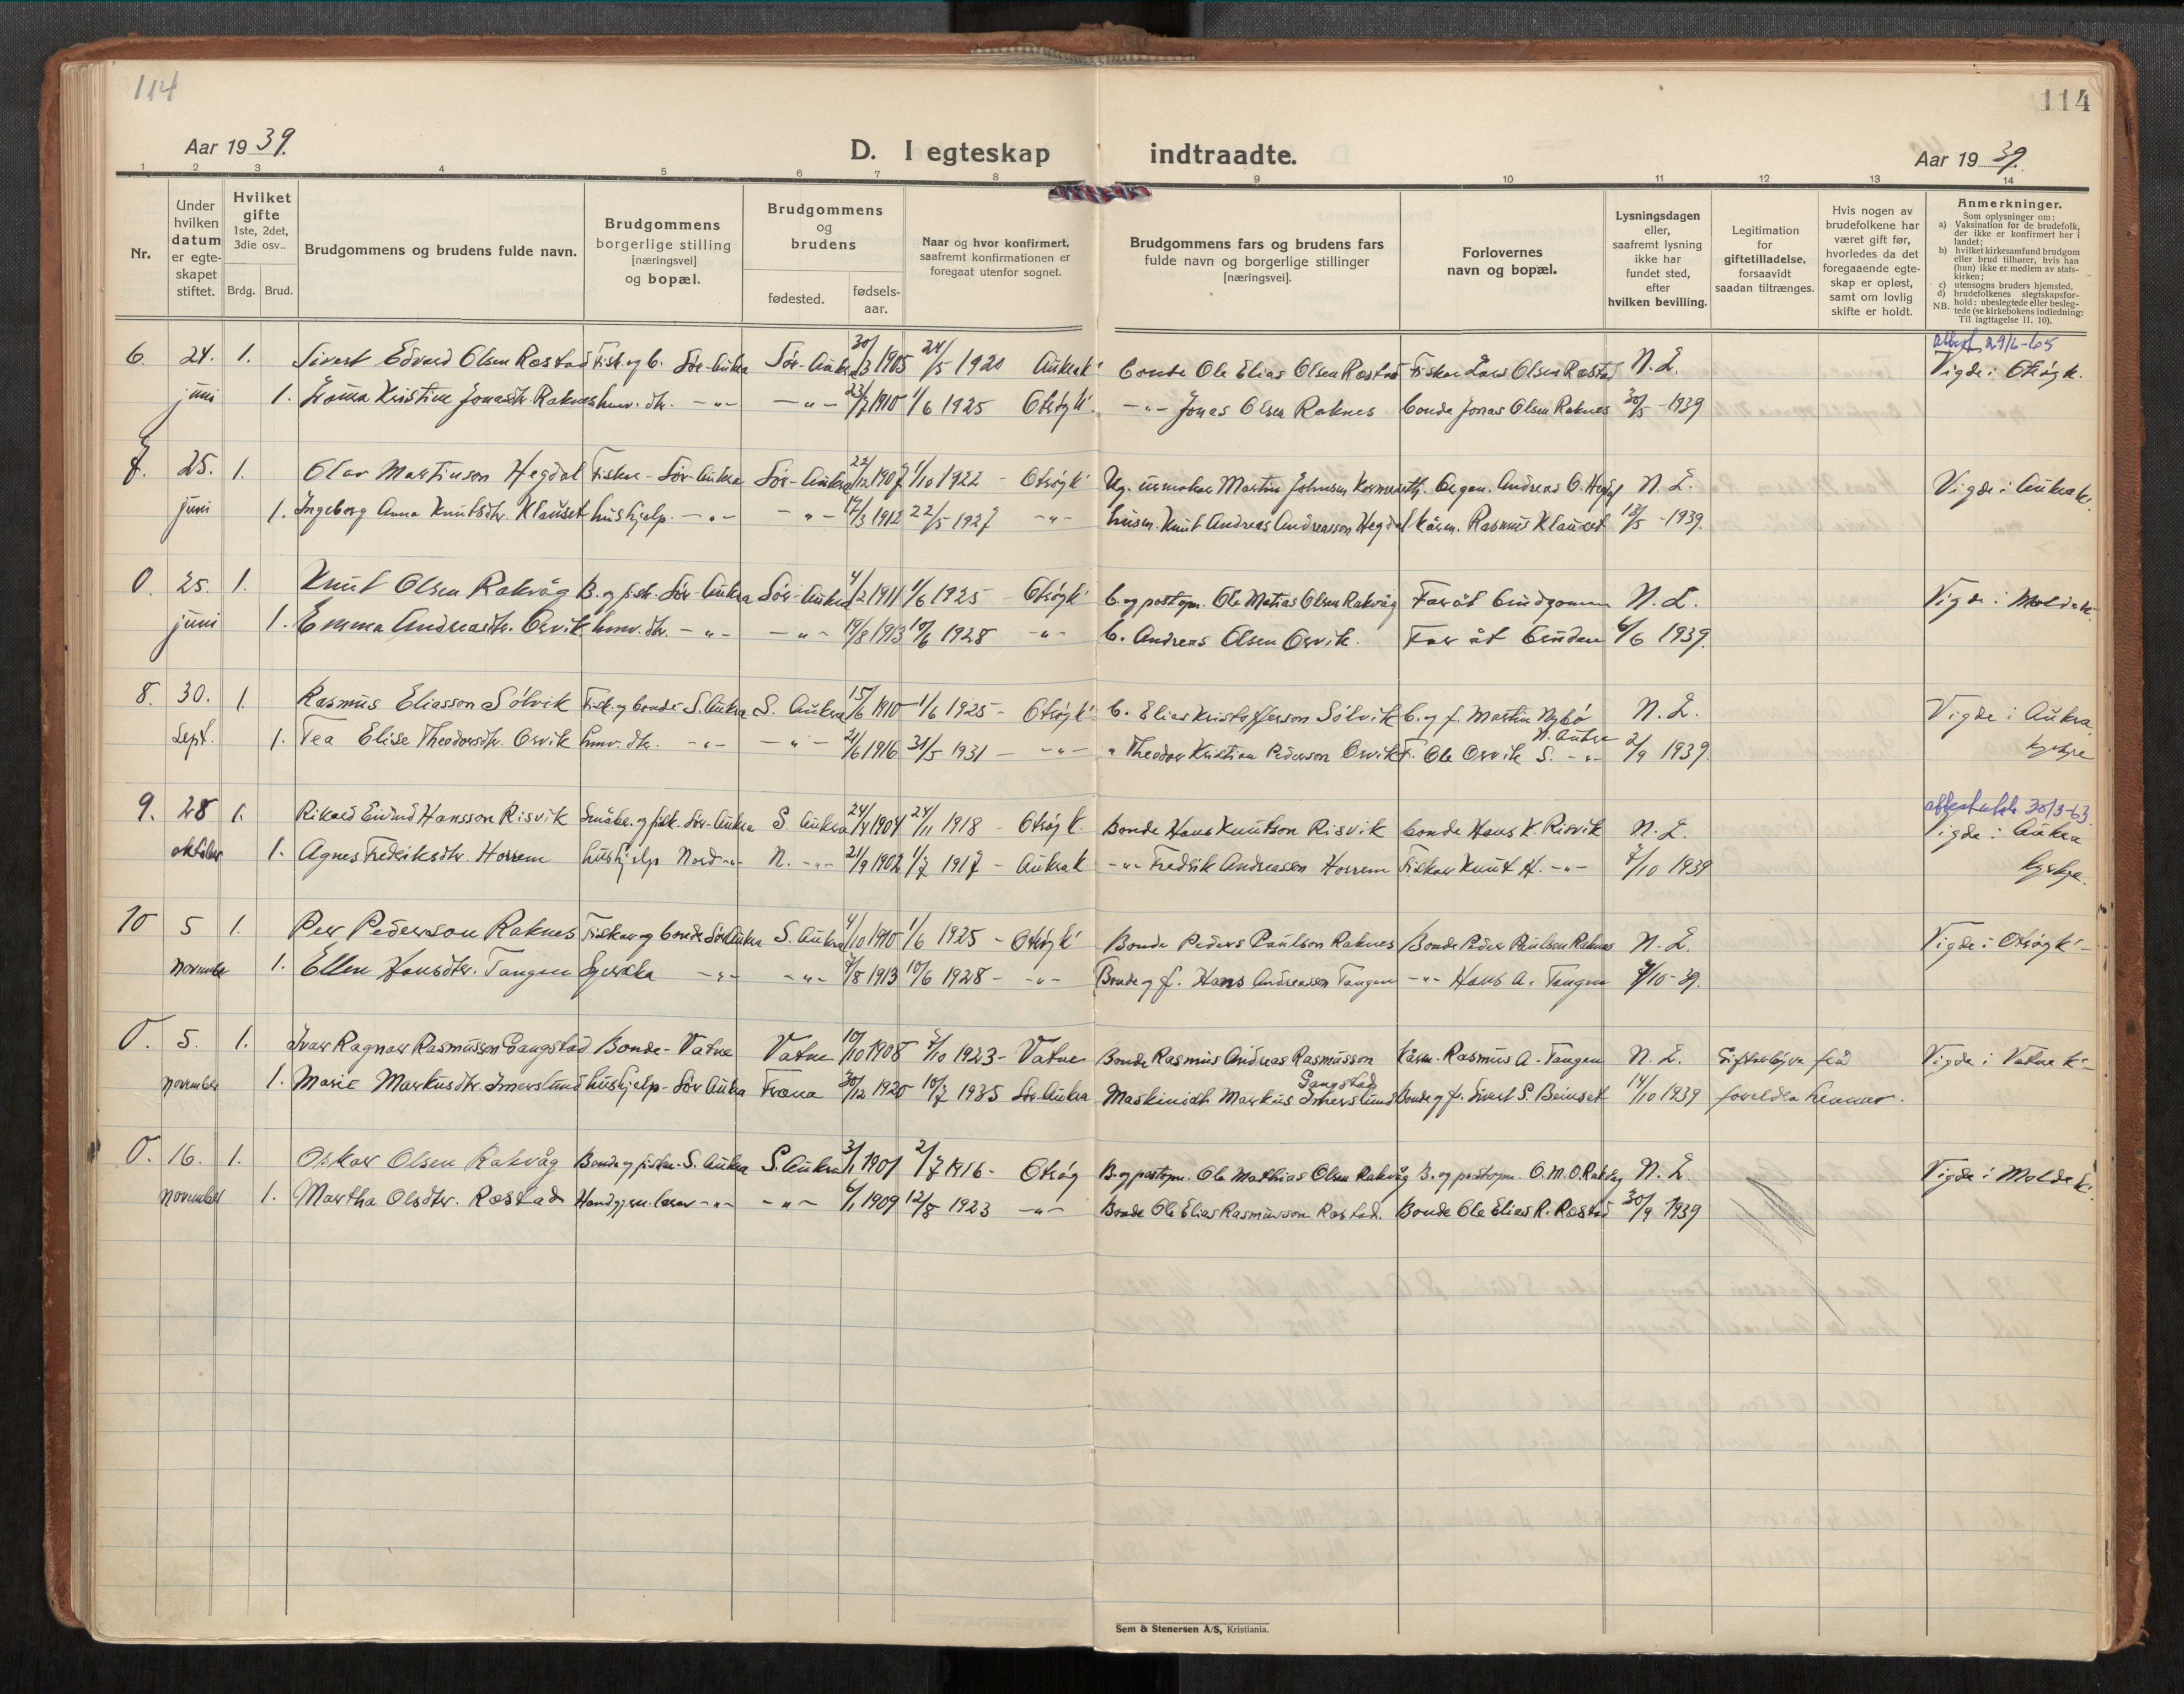 114
114
Aar 1939.
D. I egteskap indtraadte.
Aar 1939.
1 2 3 4 5 6 7 8 9 10 11 12 13 14
Nr.
Under hvilken datum er egteskapet stiftet.
Hvilket gifte 1ste, 2det, 3die osv..
Brdg. Brud.
Brudgommens og brudens fulde navn.
Brudgommens borgerlige stilling [næringsvei] og bopæl.
Brudgommens og brudens
fødested.
fødsels-aar.
Naar og hvor konfirmert, saafremt konfirmationen er foregaat utenfor sognet.
Brudgommens fars og brudens fars fulde navn og borgerlige stillinger [næringsvei].
Forlovernes navn og bopæl.
Lysningsdagen eller, saafremt lysning ikke har fundet sted, efter hvilken bevilling.
Legitimation for giftetilladelse, forsaavidt saadan tiltrænges.
Hvis nogen av brudefolkene har været gift før, hvorledes da det foregaaende egteskap er opløst, samt om lovlig skifte er holdt.
Anmerkninger.
Som oplysninger om:
a) Vaksination for de brudefolk, der ikke er konfirmert her i landet;
b) hvilket kirkesamfund brudgom eller brud tilhører, hvis han (hun) ikke er medlem av statskirken;
c) utensogns bruders hjemsted,
d) brudefolkenes slegtskapsforhold: ubeslegtede eller beslegtede (se kirkebokens indledning:
NB. Til iagttagelse II. 10).
attest 29/6-65
6. 24. 1. Sivert Edvard Olsen Røstad Fisk. og b. Sør-Aukra Sør-Aukra 30/3 1905 24/5 1920 Aukrak. bonde Ole Elias Olsen Røstad Fisker Lars Olsen Røstad N. L. Vigde i Otrøy k.
juni 1. Kristine Jonasdtr. Raknes hmv. dtr. -"- -"- 23/7 1910 1/6 1925 Otrøy k. -"- Jonas Olsen Raknes bonde Jonas Olsen Raknes 30/5 -1939
7. 25. 1. Olav Martinson Hegdal Fisker - Sør-Aukra Sør-Aukra 22/12 1907 1/10 1922 - Otrøy k. Ug. urmaker Martin Johnsen Organ. Andreas O. Hegdal N. L. Vigde i Aukra k.
juni 1. Ingeborg Anna Knutsdtr. Klauset hushjelp. -"- -"- 17/3 1912 22/5 1927 -"- husm. Knut Andreas Andreasson Hegdal kårm. Rasmus Klauset 13/5 -1939.
0. 25. 1. Knut Olsen Rakvåg B. og fisk. Sør-Aukra Sør-Aukra 4/2 1911 1/6 1925 - Otrøy k. b. og postopn. Ole Matias Olsen Rakvåg Far åt brudgomen N. L. Vigde i Molde k.
juni 1. Emma Andreasdtr. Orvik hmv. dtr. -"- -"- 19/8 1913 10/6 1928 -"- b. Andreas Olsen Orvik. Far åt bruden 6/6 1939.
8. 30. 1. Rasmus Eliasson Sølvik Fisk. og bonde S. Aukra S. Aukra 15/6 1910 1/6 1925 - Otrøy k. b. Elias Kristofferson Sølvik b. og f. Martin Nybø N. Aukra N. L. Vigde i Aukra
Sept. 1. Tea Elise Theodorsdtr. Orvik hmv. dtr. -"- -"- 21/6 1916 31/5 1931 - -"- " Theodor Kristian Pederson Orvik F. Ole Orvik S. -"- 2/9 1939. kyrkje
attest utst. 30/3-63.
9. 28 1. Rikard Eivind Hansson Risvik Småbr. og fisk. Sør-Aukra S. Aukra 24/4 1904 24/11 1918 - Otrøy k. Bonde Hans Knutson Risvik bonde Hans K. Risvik N. L. Vigde i Aukra
oktober 1. Agnes Fredriksdtr. Horrem hushjelp Nord -"- N. -"- 21/9 1902 1/7 1917 - Aukra k -"- Fredrik Andreassen Horrem Fisker Knut H. -"- 7/10 1939 kyrkje.
10 5 1. Per Pederson Raknes Fiskar og bonde Sør Aukra S. Aukra 4/10 1910 1/6 1925 - Otrøy k. Bonde Peders Paulson Raknes Bonde Peder Paulsen Raknes N. L. Vigde i Otrøy k. -
november 1. Ellen Hansdtr. Tangen Syerska -"- -"- 7/8 1913 10/6 1928 - -"- Bonde og f. Hans Andreassen Tangen -"- Hans A. Tangen 7/10-39.
0. 5. 1. Ivar Ragnar Rasmusson Gangstad Bonde - Vatne Vatne 10/10 1908 7/10 1923 - Vatne Bonde Rasmus Andreas Rasmusson Gangstad Kårm. Rasmus A. Tangen N. L. Giftarløyve frå Vigde i Vatne k. -
november 1. Marie Markusdtr. Imerslund hushjelp - Sør Aukra Fræna 30/12 1920 10/7 1935 Sør-Aukra Maskinist Markus Imerslund Bonde og f. Sivert S. Beinset 14/10 1939 foreldra hennar.
0. 16. 1. Oskar Olsen Rakvåg Bonde og fisker - S. Aukra S. Aukra 3/1 1901 2/7 1916 - Otrøy B. og postopn. Ole Mathias Olsen Rakvåg B. og postopn. O. M. O. Rakvåg N. L. Vigde i Molde k.
november 1. Martha Olsdtr. Røstad Handgjern. lærar -"- -"- 6/1 1909 12/8 1923 -"- Bonde Ole Elias Rasmusson Røstad. Bonde Ole Elias R. Røstad 30/9 1939
Sem & Stenersen A/S, Kristiania.